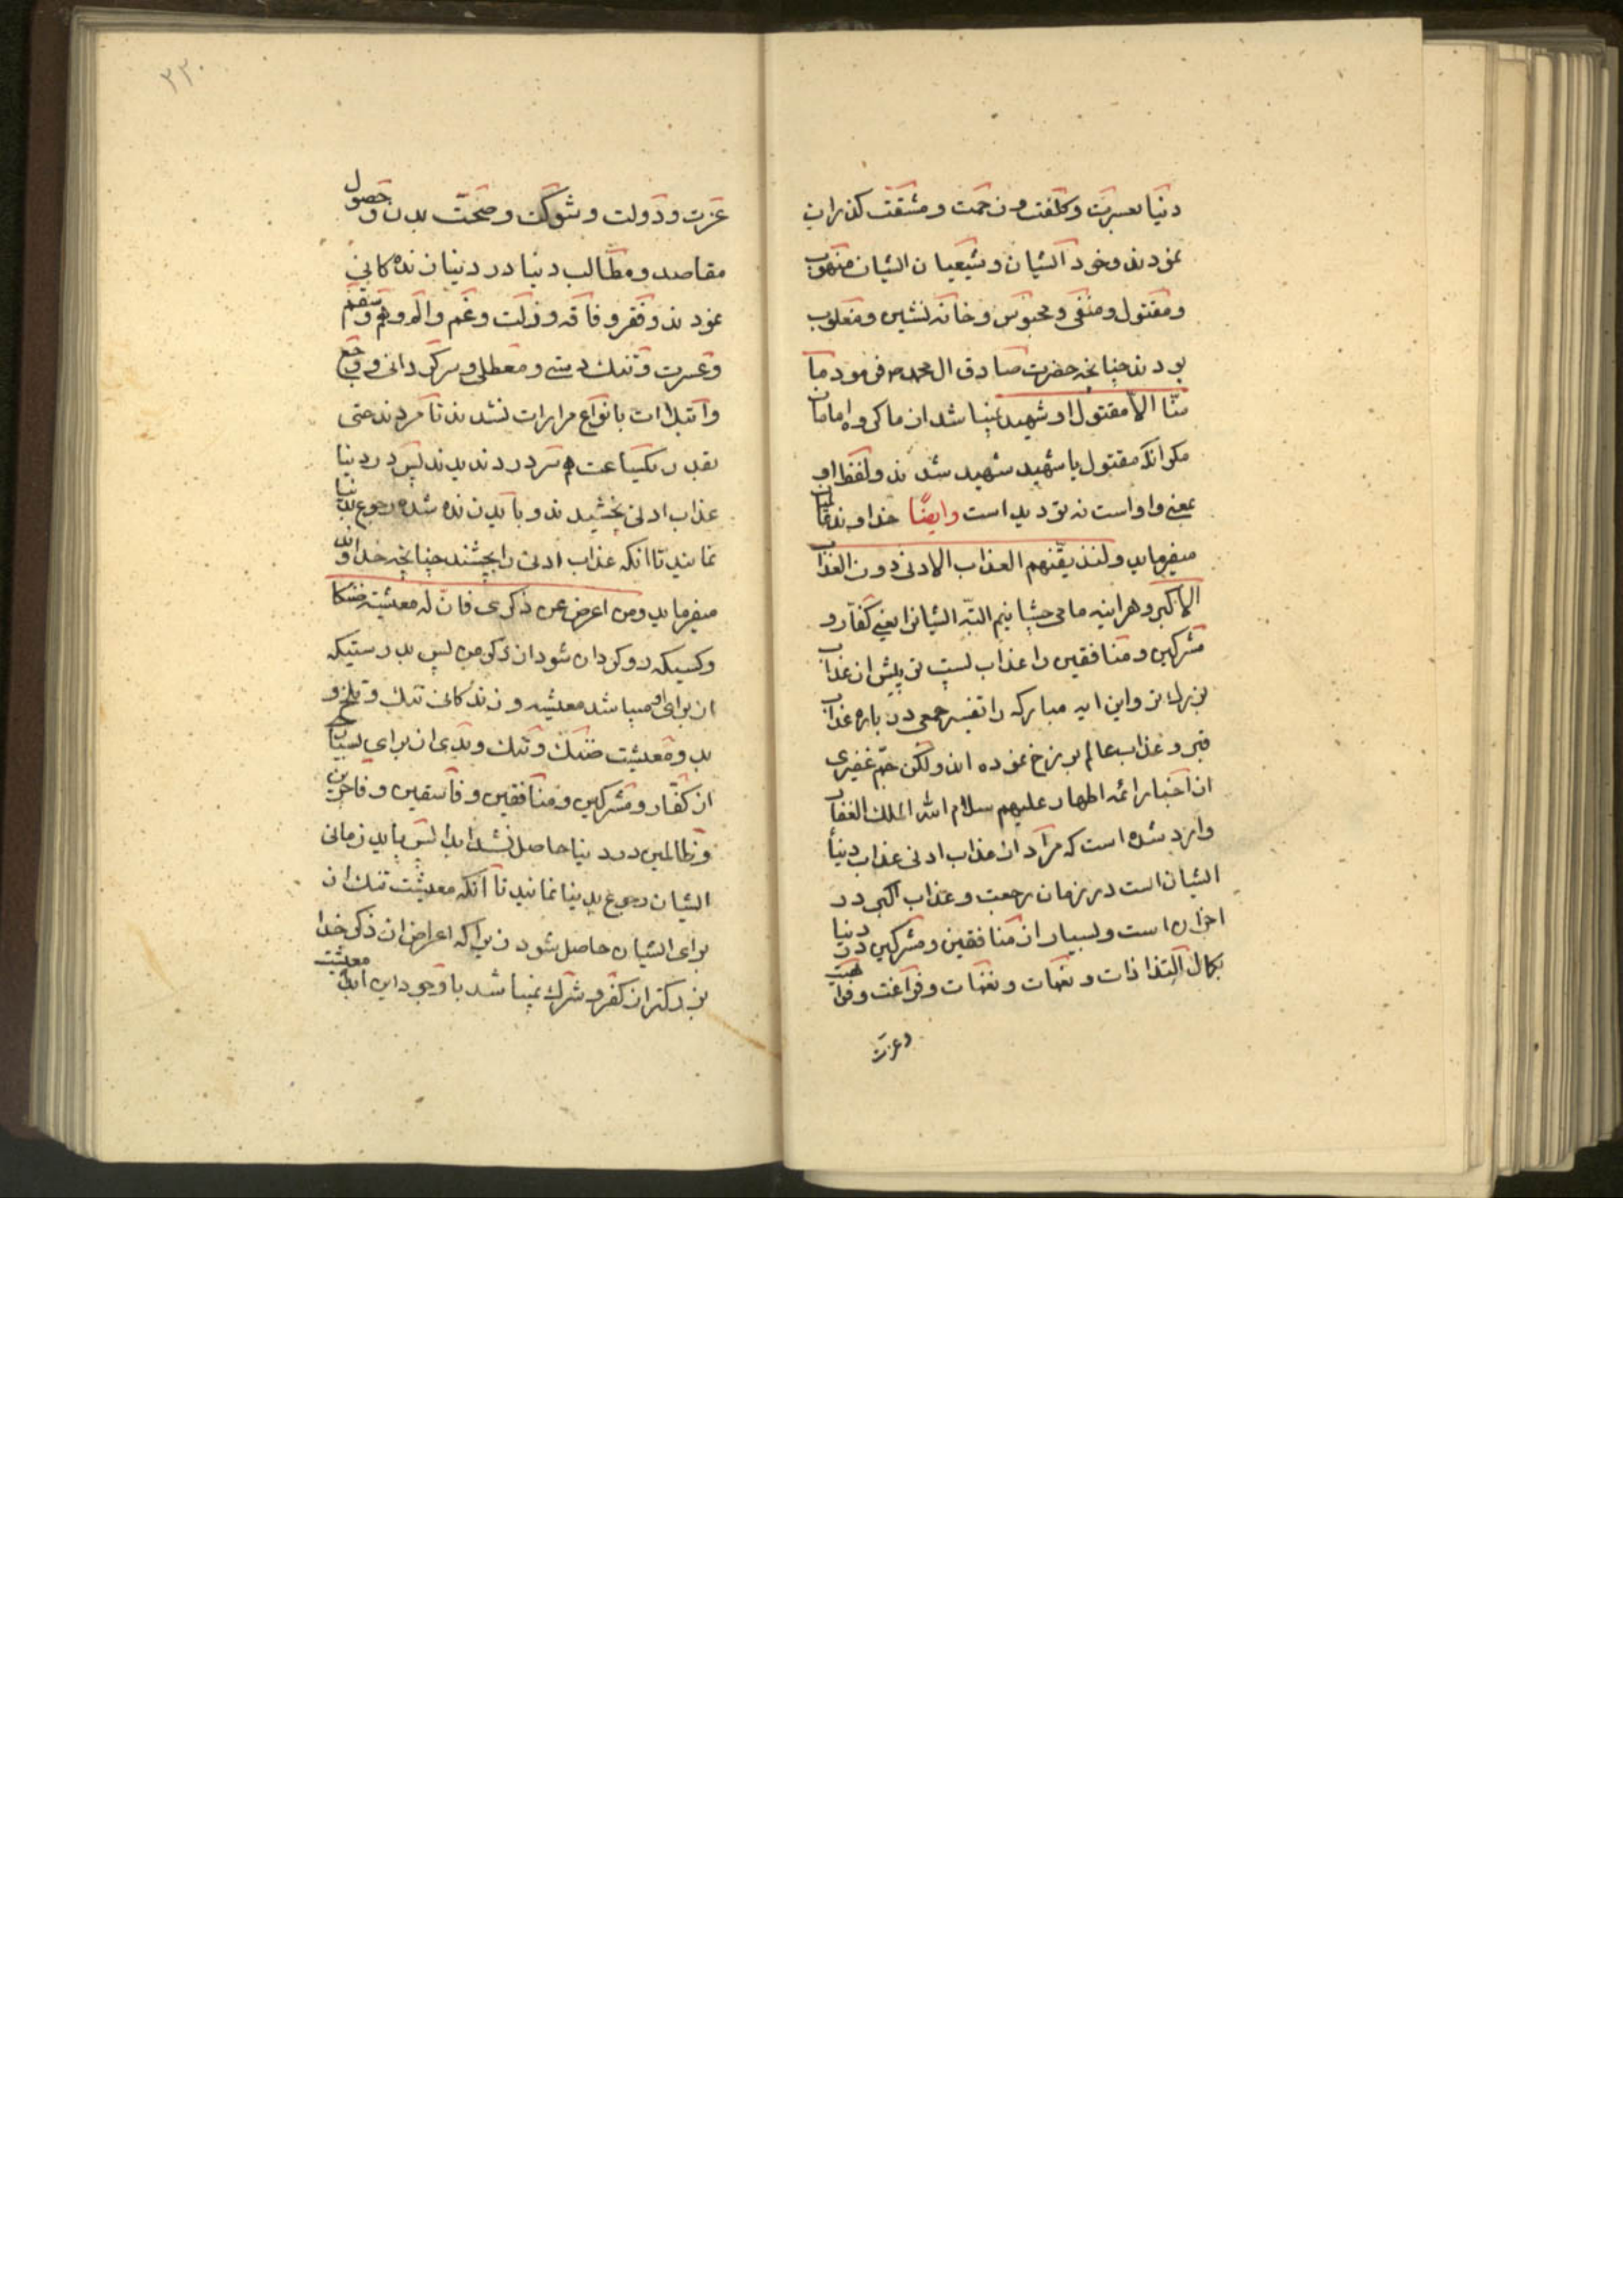 دنیا بعسرت و کلفت و زحمت و مشقت گذران
نمودند و خود ایشان و شیعیان ایشان منهوب
و مقتول و منفی و محبوس و خانه نشین و مغلوب
بودند چنانچه حضرت صادق ال محمد ص فرمود ما
منّا الا مقتول او شهید نیباشد از ما کروه امامان
مکر انکه مقتول یا شهید شهید شدند و لفظ او
بمعنی واو است نه تردید است وایضًا خداوند
میفرماید ولنذیقنهم العذاب الادنی دون العذاب
الاکبر و هراینه ما می چشانیم البتّه ایشانرا یعنی کفّار و
مشرکین و منافقین را عذاب پست تر پیش از عذاب
بزرك تر و این ایه مبارکه را تفسیر جمعی در باره عذاب
قبر و عذاب عالم برزخ نموده اند ولکن جمّ غفیری
از اخبار ائمه اطهار علیهم سلام الله الملك الغفار
وارد شده است که مراد از عذاب ادنی عذاب دنیا
ایشان است در زمان رجعت و عذاب اکبر در
اخرت است و بسیار از منافقین و مشرکین در دنیا
بکمال التذاذات و نعمات و نغمات و فراغت و
و عزت
۲۲۰
عزت و دولت و شوکت و صحّت بدن و حصول
مقاصد و مطالب دنیا در دنیا زنده کانی
نمودند و فقر و فاقه و ذلت و غم و الم و هم و سقم
و عسرت و تنك دستی و معطلی و سرکردانی و وجع
و ابتلاات بانواع مرارات نشدند تا مردند حتی
بقدر یکساعت هم سردرد ندیدند پس در دنیا
عذاب ادنی نچشیدند و باید زنده شده رجوع بدنیا
نمایند تا انکه عذاب ادنی را بچشند چنانچه خداوند
میفرماید ومن اعرض عن ذکری فان له معیشة ضنکا
و کسیکه روکردان شود از ذکر من پس بدرستیکه
از برای او میباشد معیشة و زندکانی تنك و تلخ و
بد و معیشت ضنك و تنك و بدی از برای بسیار
از کفّار و مشرکین و منافقین و فاسقین و فاجرین
و ظالمین در دنیا حاصل نشد ابدا پس باید زمانی
ایشان رجوع بدنیا نمایند تا آنکه معیشت تنك از
برای ایشان حاصل شود زیرا که اعراض از ذکر خدا
بزرکتر از کفر و شرك نمیباشد با وجود این معیشت